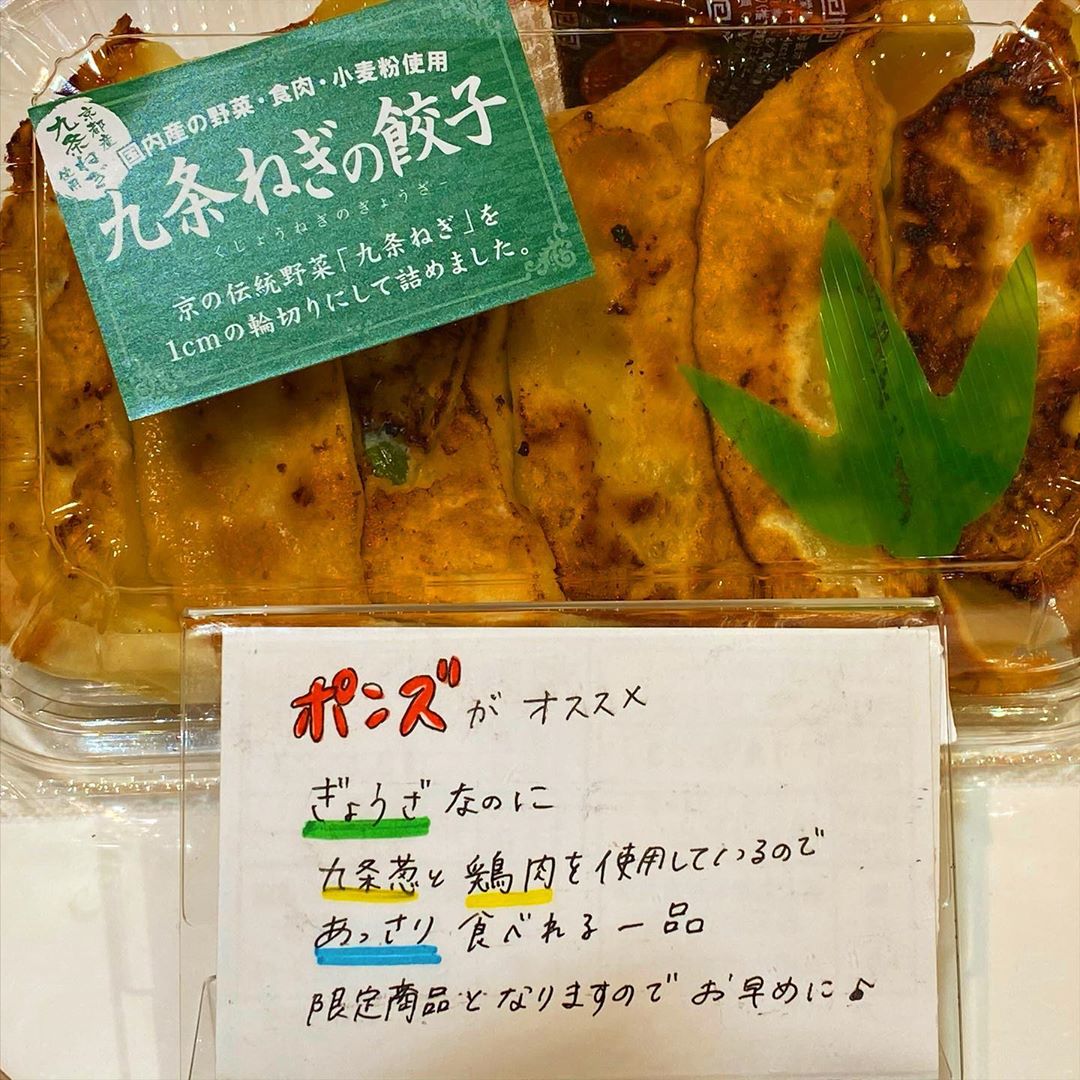 国内産の野菜・食肉・小麦粉使用
京都産
九条ねぎ
使用
九条ねぎの餃子
くじょうねぎのぎょうざ
京の伝統野菜「九条ねぎ」を
1cmの輪切りにして詰めました。
ポンズがオススメ
ぎょうざなのに
九条葱と鶏肉を使用しているので
あっさり食べれる一品
限定商品となりますのでお早めに♪